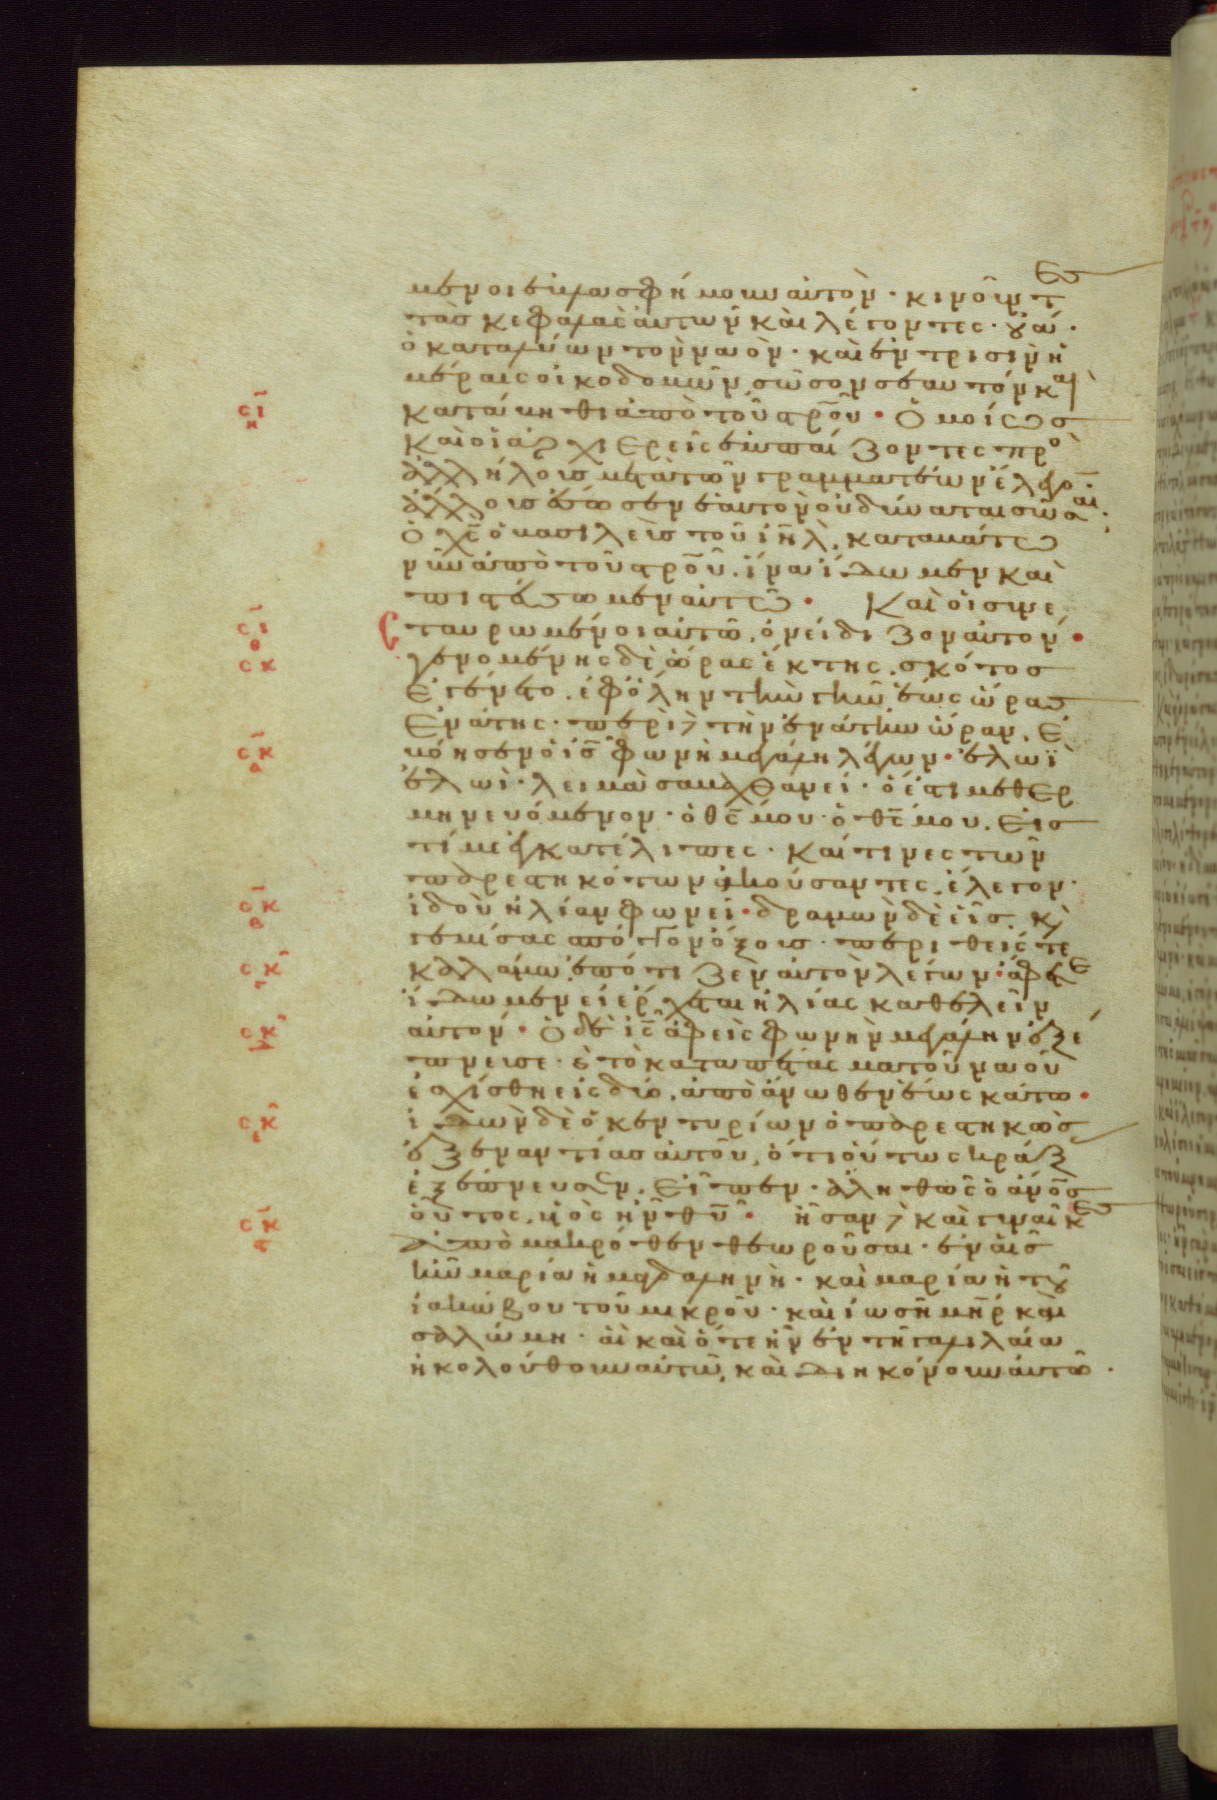 μενοι ἐβλασφήμουν αὐτὸν · κινοῦντες
τὰσ κεφαλὰς αὐτῶν καὶ λέγοντες · οὐά ·
ὁ καταλύων τὸν ναὸν · καὶ ἐν τρισὶν ἡ
μέραις οἰκοδομῶν σῶσον σεαυτόν καὶ
κατάβηθι ἀπὸ τοῦ σρου̅ · Ὁμοίωσ
Καὶ οἱ ἀρχιερεῖς ἐμπαίζοντες πρὸ
ἀλλήλουσ μετὰ τῶν γραμματέων ἔλεγον ·
ἄλλουσ ἔσωσεν ἑαυτὸν οὐ δύναται σῶσαι ·
Ὁ χς̅ ὁ βασιλεὺσ τοῦ ιη̅λ, καταβάτω
νῦν ἀπὸ τοῦ σρου̅ · ἵνα ἴδωμεν καὶ
πιστεύσωμεν αὐτῶ · Καὶ οἱ συνε
σταυρωμένοι αὐτῶ, ὀνείδιζον αὐτόν ·
γενομένης δὲ ὥρας ἕκτης, σκότοσ
ἐγένετο, ἐφ ὅλην τὴν γῆν ἕως ὥρασ
Ἐνάτης · περὶ δὲ τὴν ἐνάτην ὥραν, ἐ
βόησεν ὁ ις̅ φωνὴ μεγάλη λέγων · ἐλωῒ
ἐλωῒ · λειμὰ σαβαχθανεί · ὅ ἐστι μεθερ
μηνευόμενον · ὁ θς̅ μου · ὁ θς̅ μου, εἰσ
τί με ἐγκατέλιπες · Καί τινες τῶν
παρεστηκότων ἀκούσαντες, ἔλεγον ·
ἰδοὺ ἠλίαν φωνεῖ · δραμὼν δὲ εἷσ, κὶ
γεμίσας σπόγγον ὄξουσ · περιθείς τε
καλάμω, ἐπότιζεν αὐτὸν λέγων · ἄφετε
ἴδωμεν εἰ ἔρχεται ἠλίας καθελεῖν
αὐτόν · Ὁ δὲ ις̅ ἀφεὶς φωνὴν μεγάλην ἐξέ
πνευσε · κὶ τὸ καταπέτασμα τοῦ ναοῦ
ἐσχίσθη εἰς δύο, ἀπὸ ἄνωθεν ἕως κάτω ·
ἰδὼν δὲ ὁ κεντυρίων ὁ παρεστηκὼσ
ἐξ ἐναντίασ αὐτοῦ, ὅτι οὕτως κράξας
ἐξέπνευσεν, Εἶπεν · ἀληθῶς ὁ ἀνοσ̅
οὗτος, υἱὸς ἦν θυ̅ · ἦσαν δὲ καὶ γυναῖκες
ἀπὸ μακρόθεν θεωροῦσαι · ἐν αἷσ
ἦν μαρία ἡ μαγδαληνὴ · καὶ μαρία ἡ τοῦ
ἰακώβου τοῦ μικροῦ · καὶ ἰωσῆ μη̅ρ καὶ
σαλώμη · αἳ καὶ ὅτε ἦν ἐν τῆ γαλιλαία
ἠκολούθουν αὐτῶ, καὶ διηκόνουν αὐτῶ ·